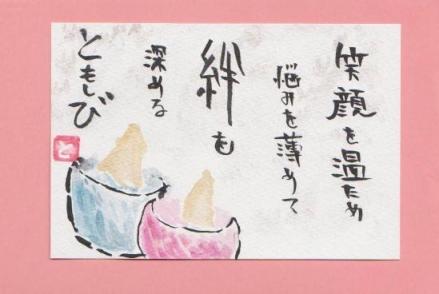 笑顔を温ため
悩みを薄めて
絆を
深める
ともしび
と